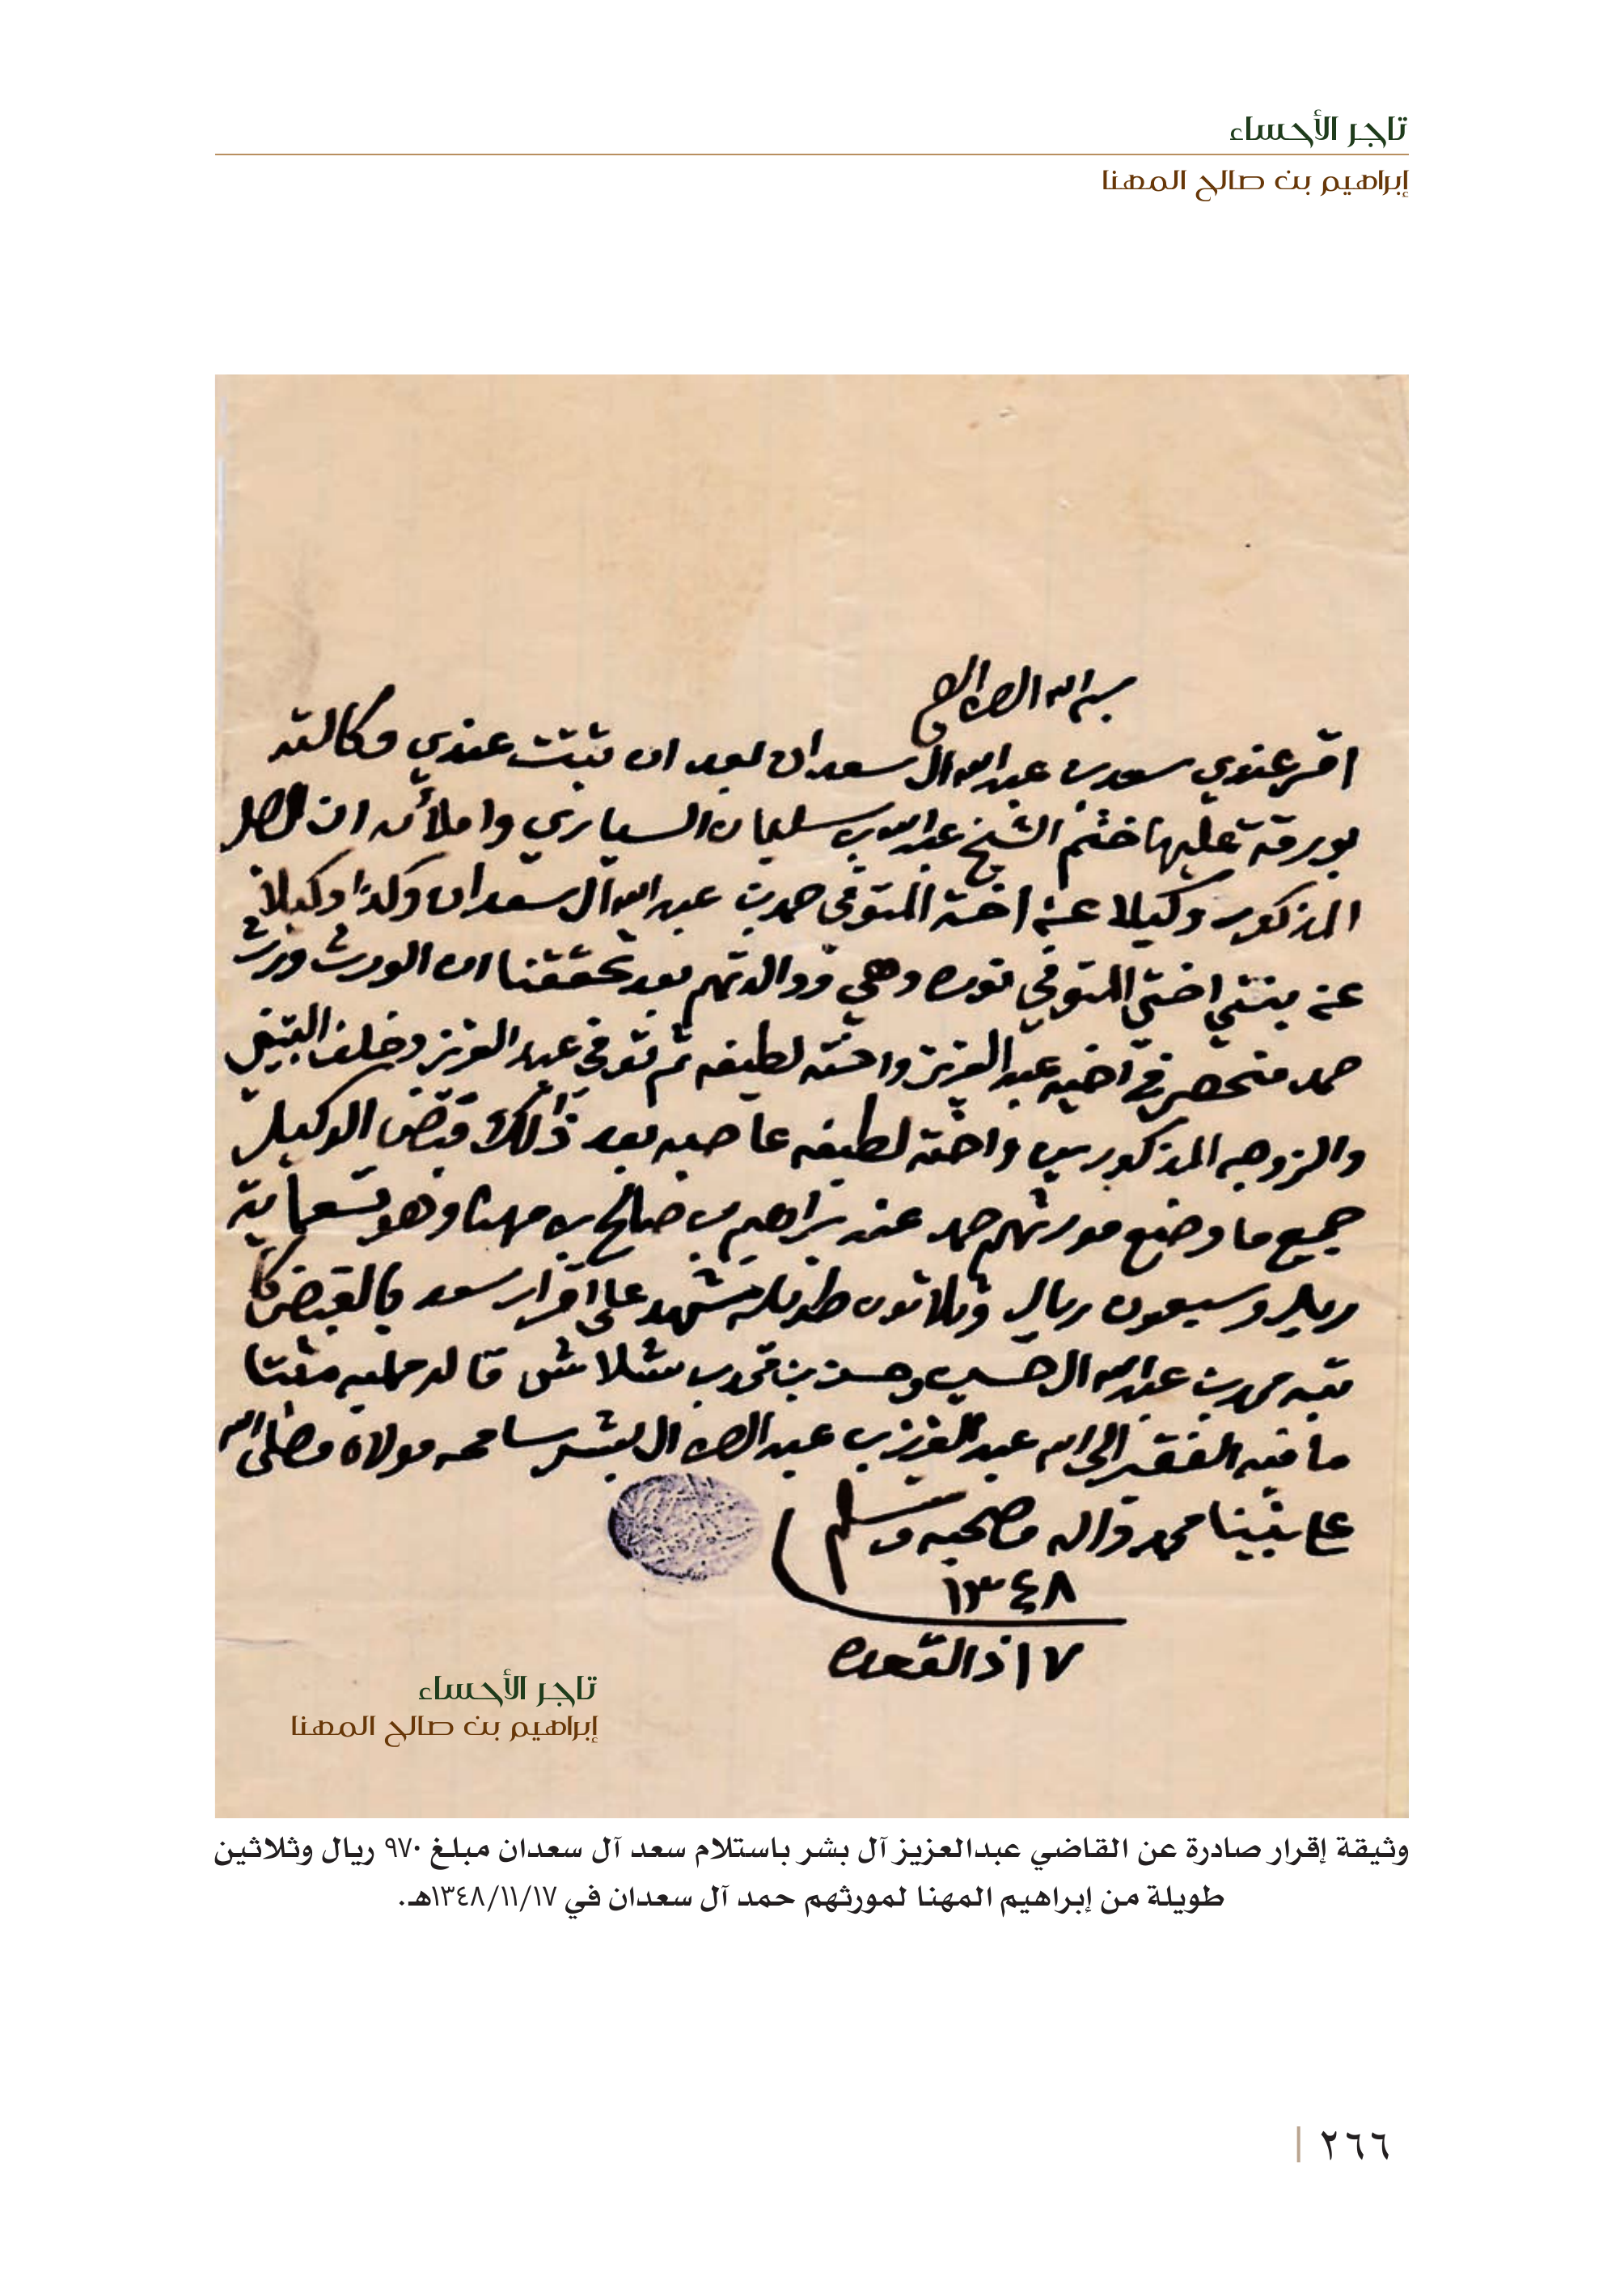 تاجر الأحساء
إبراهيم بن صالح المهنا
بسم الله الرحمن الرحيم
اقر عندي سعد بن عبدالله ال سعدان بعد ان ثبتت عندي وكالته
بورقة عليها ختم الشيخ عبدالله بن سليمان السياري واملأه ان
المذكور وكيلا عن اخته المتوفى حمد بن عبدالله ال سعدان وكذا وكيلاً
عن بنتي اختي المتوفي نوره وهي ووالدتهم بعد تحققنا ان الورث ورث
حمد منحصر في اخيه عبدالعزيز واخته لطيفه ثم توفي عبدالعزيز وخلف
والزوجه المذكورين واخته لطيفه عاصبه بعد ذالك قبض الوكيل
جميع ما وضع مورثهم حمد عند براهيم بن صالح بن مهنا وهو تسعمأية
ريال وسبعون ريال وثلاثون طويله شهد على اقرار سعد بالقبض كا
تبه محمد بن عبدالله ال حسين وحسن بن محمد بن شلاش قاله ممليه مثبتا
ما فيه الفقير الى الله عبدالعزيز بن عبدالرحمن ال بشر سامحه مولاه وصلى الله
على نبينا محمد واله وصحبه وسلم
١٣٤٨
١٧ ذالقعده
تاجر الأحساء
إبراهيم بن صالح المهنا
وثيقة إقرار صادرة عن القاضي عبدالعزيز آل بشر باستلام سعد آل سعدان مبلغ ٩٧٠ ريال وثلاثين
طويلة من إبراهيم المهنا لمورثهم حمد آل سعدان في ١٣٤٨/١١/١٧هـ.
٢٦٦